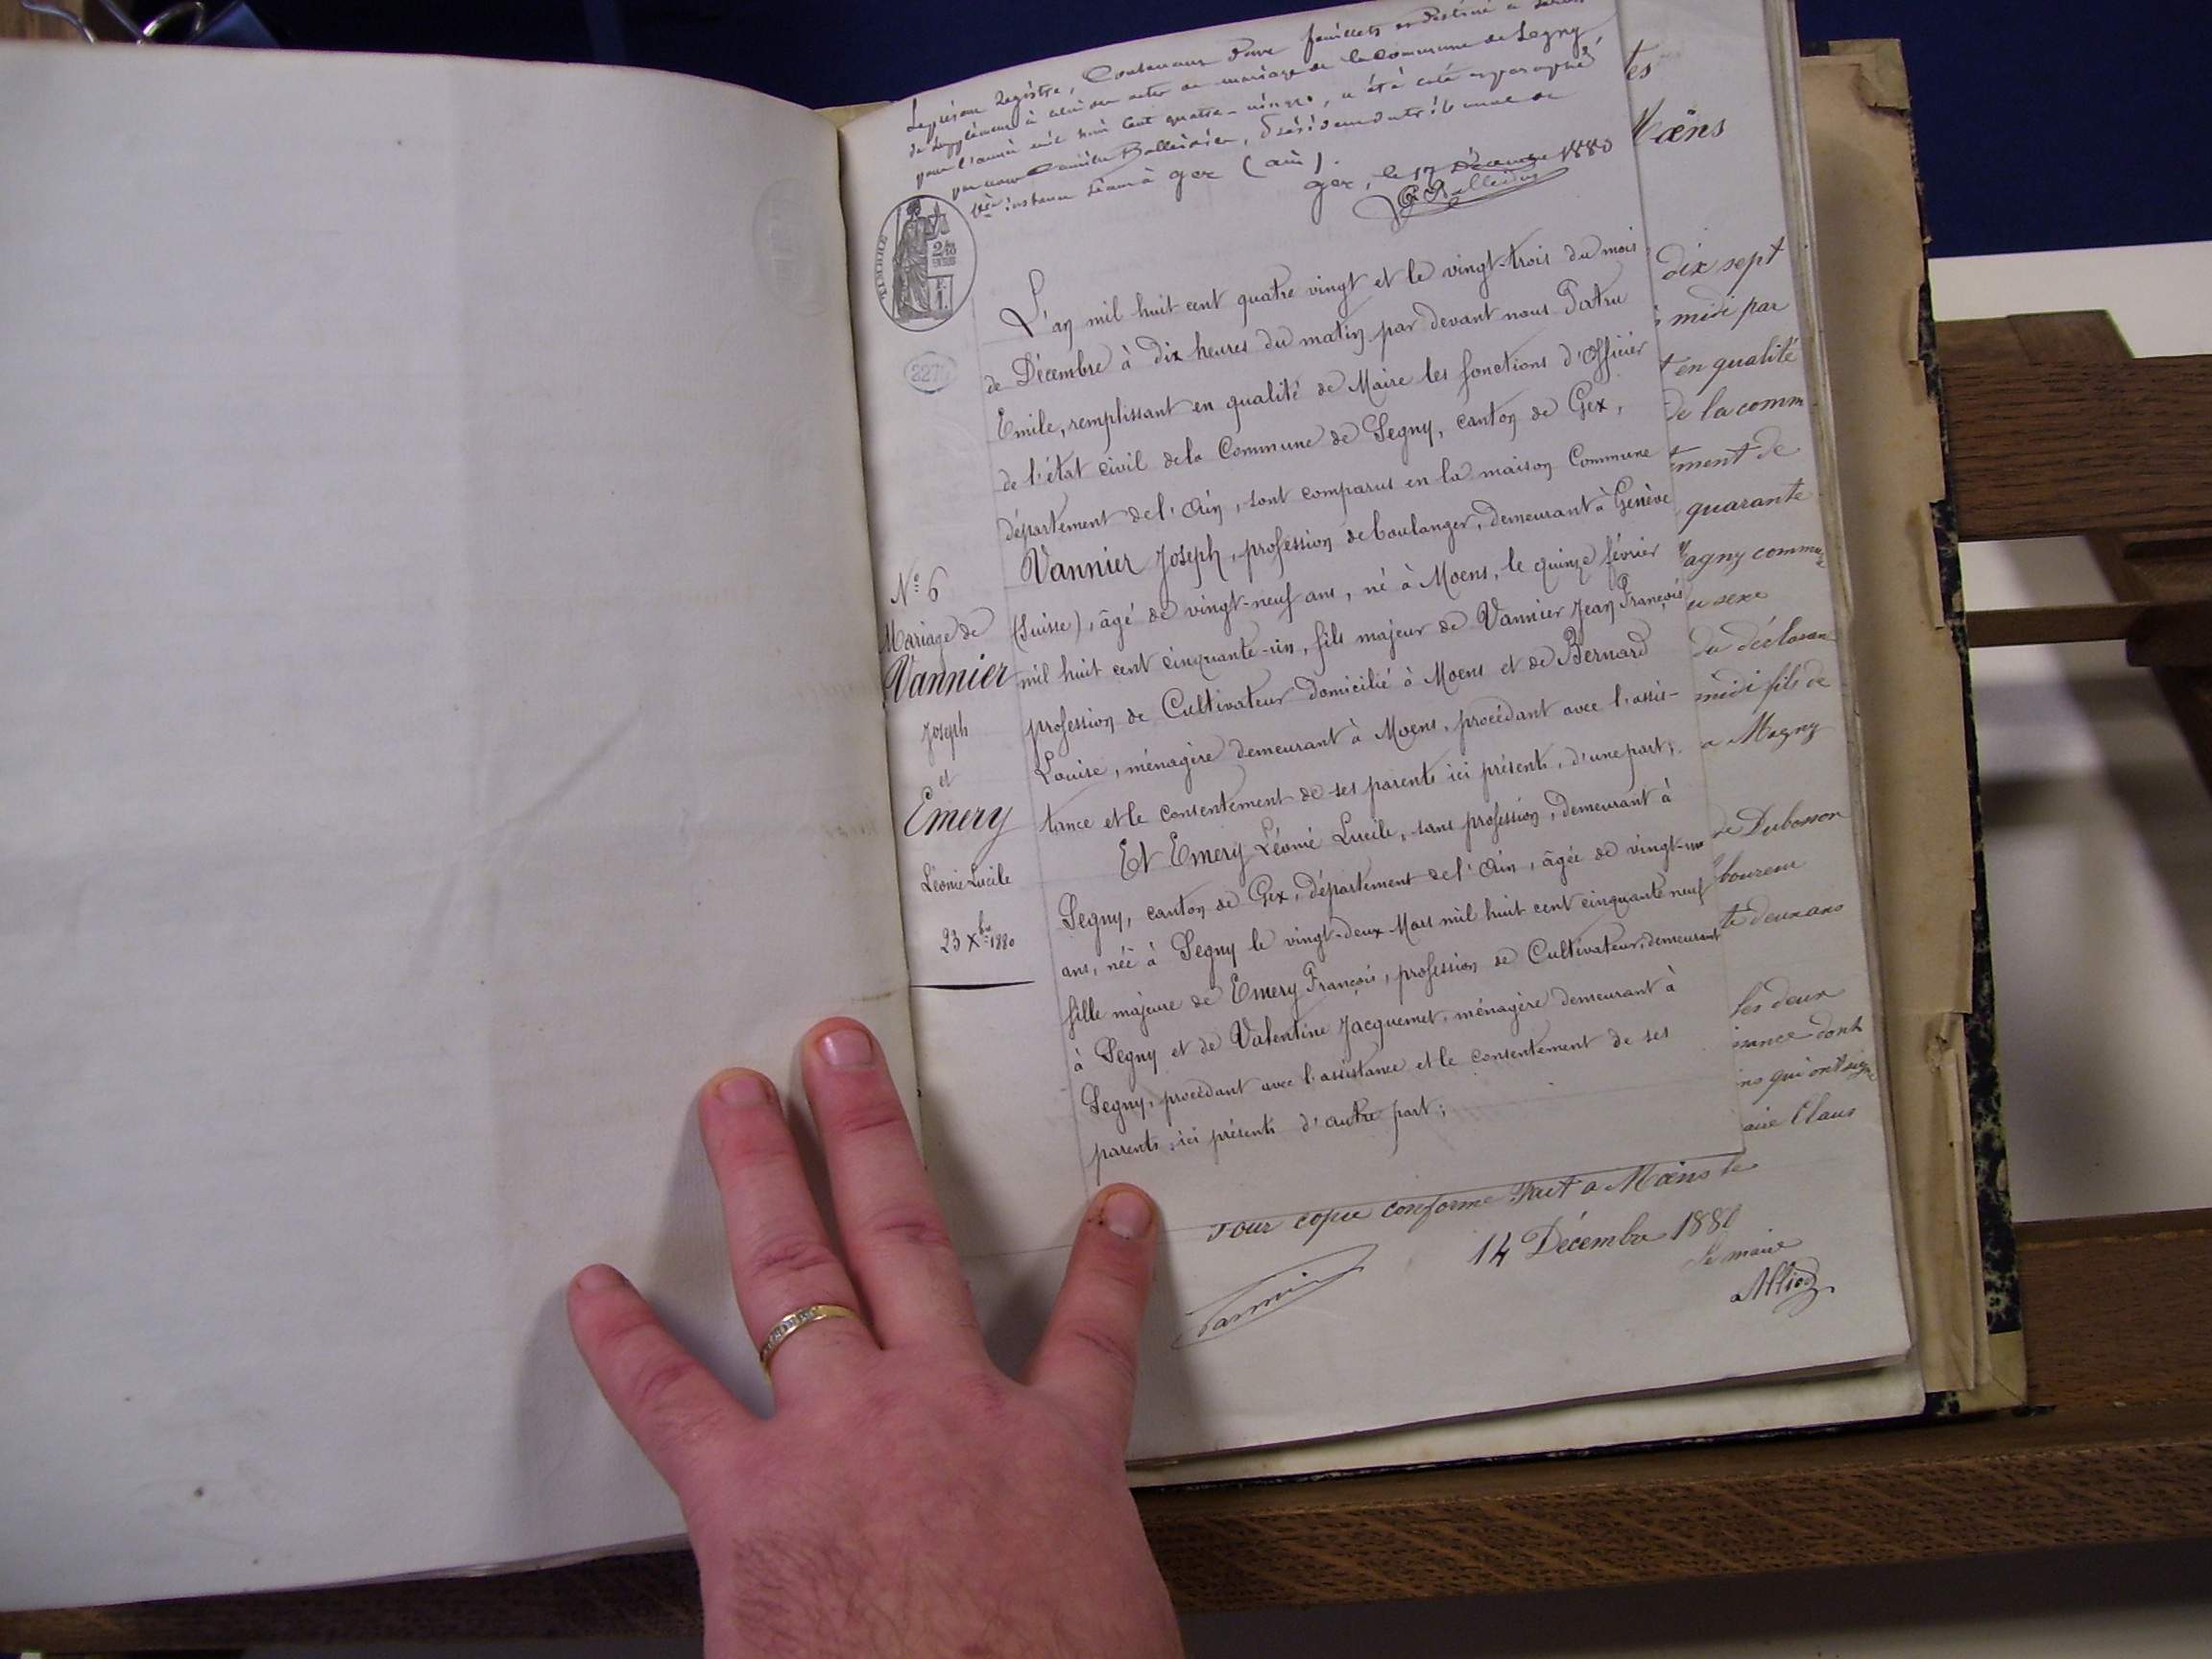 Le présent registre, Contenant deux feuillets et destiné à servir
de supplément à celui des actes de mariage de la Commune de Segny,
pour l'année mil huit cent quatre-vingts, a été coté et paraphé
par nous Camille Balleidier, Président du tribunal de
1ère instance séant à Gex (ain).
Gex, le 17 Décembre 1880
C Balleidier
TIMBRE
2276
L'an mil huit cent quatre vingt et le vingt-trois du mois
de Décembre à dix heures du matin par devant nous Patru
Emile, remplissant en qualité de Maire les fonctions d'Officier
de l'état civil de la Commune de Segny, canton de Gex,
département de l'Ain, sont comparus en la maison Commune
Vannier Joseph, profession de boulanger, demeurant à Genève
(Suisse), âgé de vingt-neuf ans, né à Moens, le quinze février
mil huit cent cinquante-un, fils majeur de Vannier Jean François
profession de Cultivateur domicilié à Moens et de Bernard
Louise, ménagère demeurant à Moens, procédant avec l'assis-
tance et le consentement de ses parents ici présents, d'une part;
Et Emery Léonie Lucile, sans profession, demeurant à
Segny, canton de Gex, département de l'Ain, âgée de vingt-un
ans, née à Segny le vingt-deux Mars mil huit cent cinquante neuf
fille majeure de Emery François, profession de Cultivateur, demeurant
à Segny et de Valentine Jacquemet, ménagère demeurant à
Segny, procédant avec l'assistance et le consentement de ses
parents ici présents d'autre part;
N° 6
Mariage de
Vannier
Joseph
et
Emery
Léonie Lucile
23 Xbre 1880
tes
Mœns
dix sept
midi par
t en qualité
de la comm
tement de
quarante
Magny commu
u sexe
du déclaran
midi fils de
a Magny
de Dubosson
laboureur
te deux ans
les deux
issance dont
ns qui ont signé
aire Claus
Pour copie conforme Fait a Mœns le
14 Décembre 1880
Le maire
Alliod